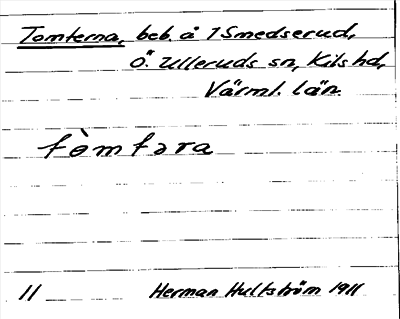 Tomterna, beb. å 1 Smedserud,
Ö. Ulleruds sn, Kils hd,
Värml. län.
tòmtəra
11 Herman Hultström 1911